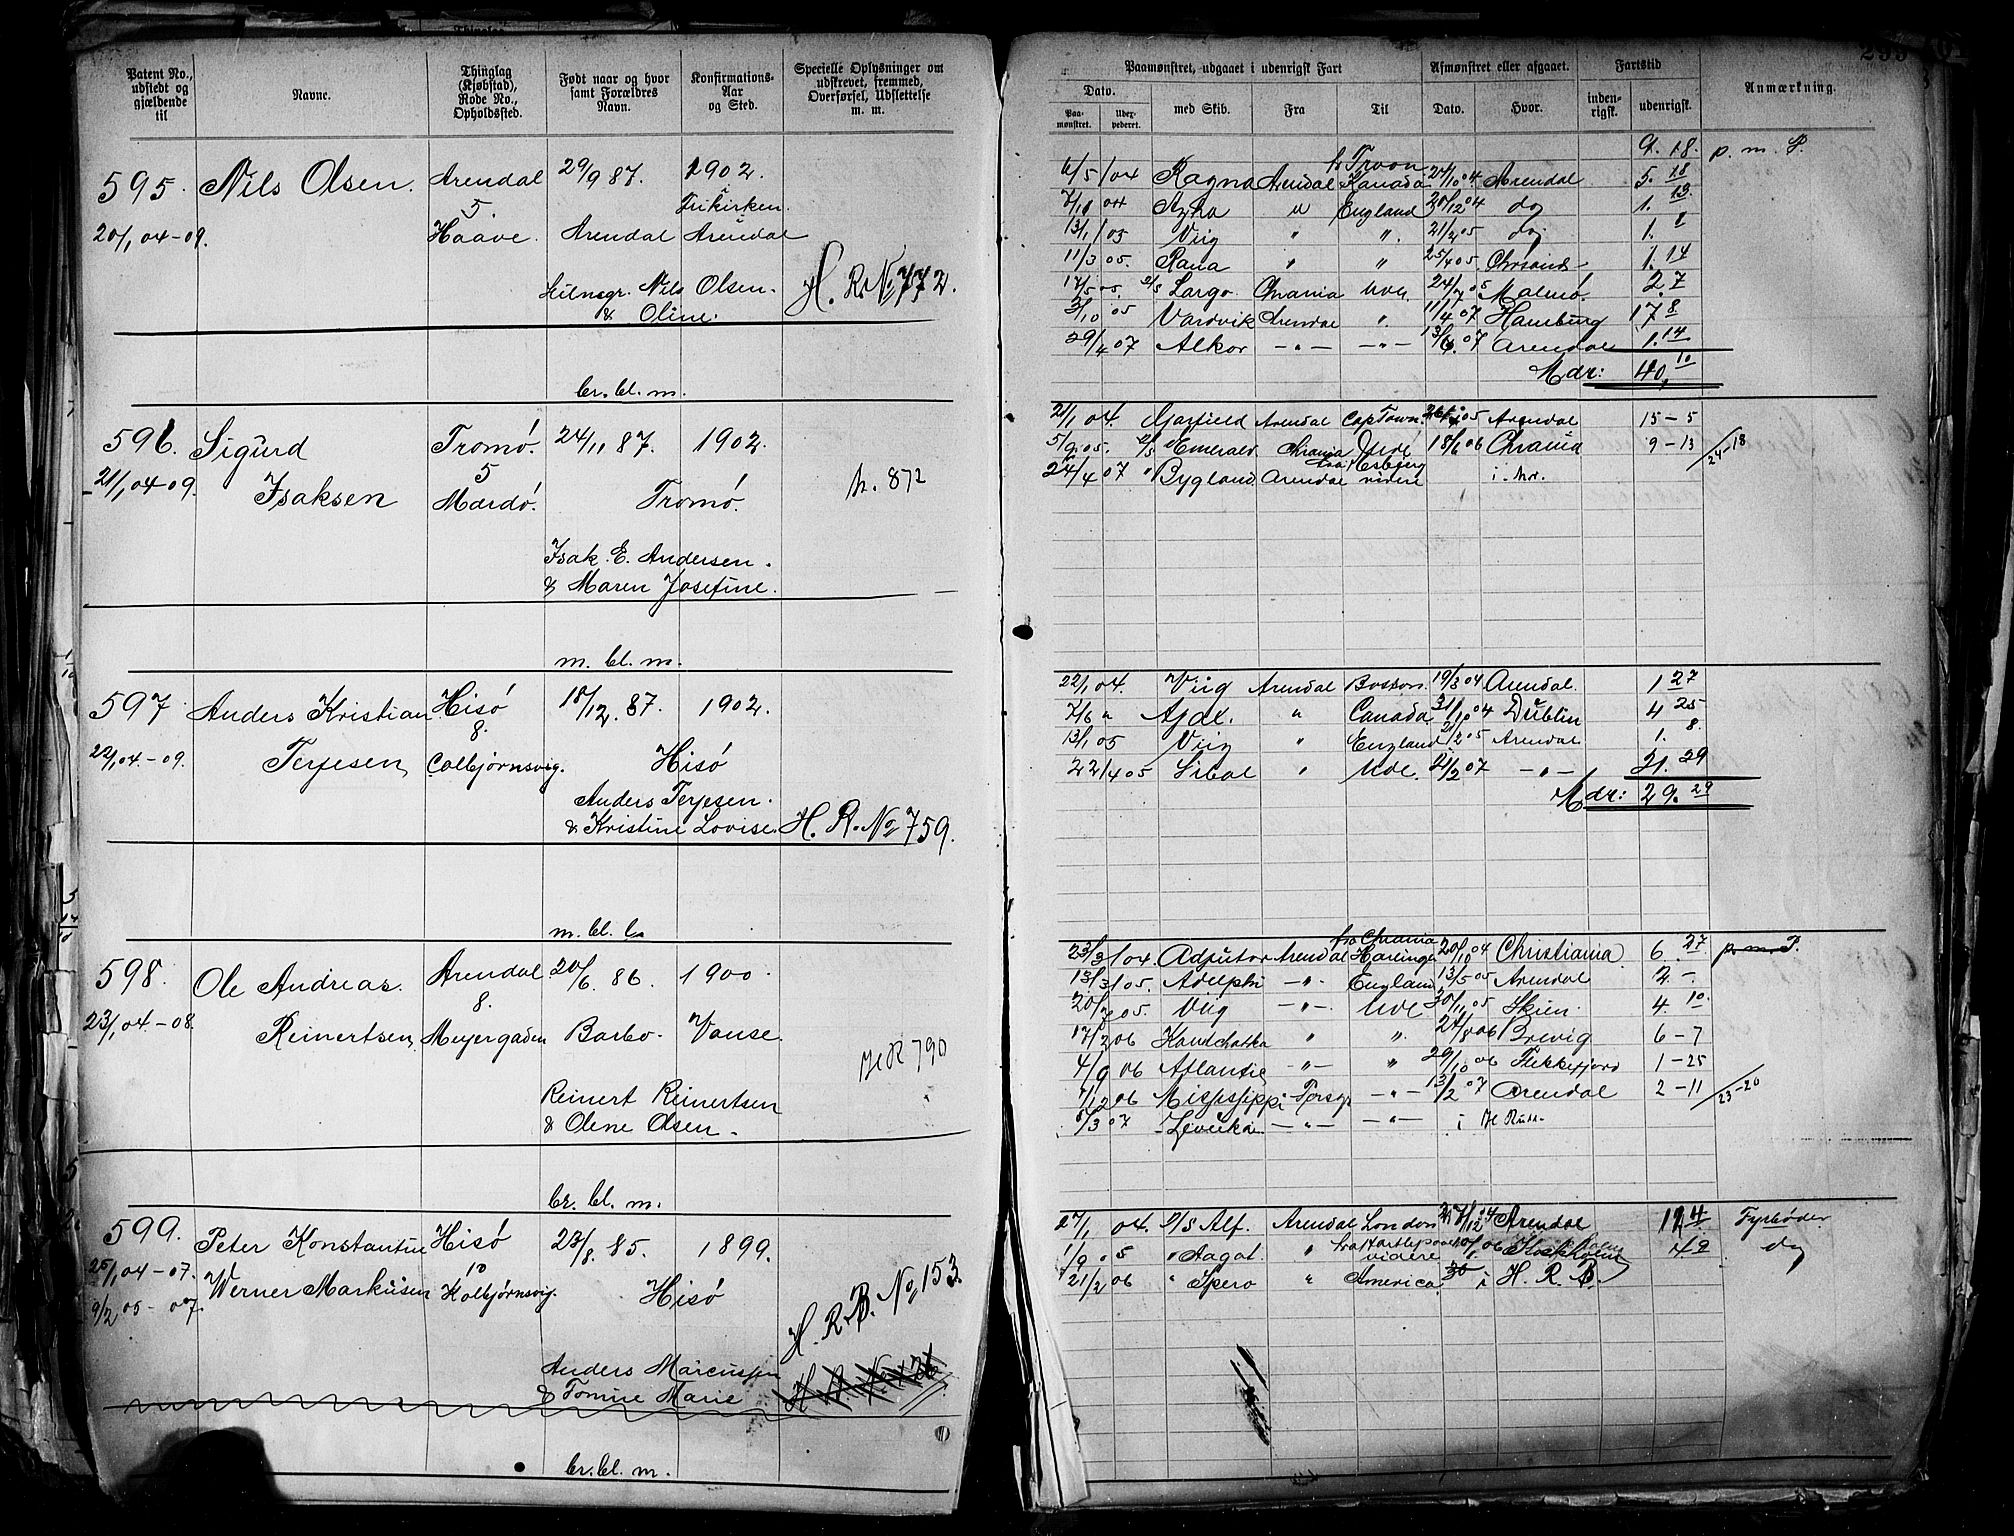 Patent No., udstedt og gjældende til
Navne.
Thinglag (Kjøbstad), Rode No., Opholdssted.
Født naar og hvor samt Forældres Navn.
Konfirmations-Aar og Sted.
Specielle Oplysninger om udskrevet, fremmed, Overførsel, Udslettelse m. m.
595. Nils Olsen. Arendal 29/9 87. 1902.
5. Frikirken
20/1 04-09. Haave. Arendal Arendal
Nils Olsen. H. R. No 772.
& Oline.
br. bl. m.
596. Sigurd Tromö. 24/11 87. 1902.
21/1 04-09. Isaksen 5 Mardö. Tromö. h. 872
Isak E. Andersen.
& Maren Josefine.
m. bl. m.
597 Anders Kristian Hisö 18/12. 87. 1902.
8.
22/1 04.-09. Terjesen Colbjørnsvig. Hisö
Anders Terjesen.
& Kristine Lovise. H. R. No 759.
m. bl. b
598. Ole Andreas. Arendal 20/6. 86. 1900.
8.
23/1 04-08. Reinertsen Meyergaden Barbo. Vanse. H R 790
Reinert Reinertsen
& Olene Olsen.
br. bl. m.
599. Peter Konstantin Hisö 23/8. 85. 1899.
25/1 04-07. Werner Markusen 10
9/2 05-07. Kolbjørnsvig. Hisö
H. R. B. No 153.
Anders Marcussen
& Tomine Marie
br. bl. m.
Paamønstret, udgaaet i udenrigsk Fart
Afmønstret eller afgaaet.
Fartstid
Anmærkning.
Dato.
Paa-mønstret.
Udex-pederet.
med Skib.
Fra
Til
Dato.
Hvor.
inden-rigsk.
udenrigsk.
fr Troon 9. 18. p. m. S.
6/5 04 Ragna Arendal Kanada 24/10 04 Arendal 5. 18
England 20/12 04 do 1. 13.
13/1 05 Viig " " 21/2 05 do 1. 8
11/3 05. Rana " " 25/4 05. Chrsand 1. 14
17/5 05. D/S Largo. Chrania Udl. 24/7 05 Malmö. 2. 7
3/10 05 Vardvik Arendal " 11/4 07 Hamburg 17 8
29/4 07 Alkor -"- -"- 13/6. 07 Arendal 1. 14
Mdr: 40, 10
21/1 04. Garfield Arendal Cap Town. 05 Arendal 15-5
5/9. 05. D/S Emerald. Chrania Udl 18/6 06 Chrania 9-13 24-18
fra Esbjerg
24/4 07 " Bygland Arendal videre
22/1 04. Viig Arendal Boston. 19/3 04 Arendal. 1 27
7/6 " " Canada 31/10 04 Dublin 4 25
13/1 05 Viig " England 2/2 05 Arendal 1. 8.
22/4 05 Sirbal " Udl. 21/2 07 -"- 21. 29
Mdr: 29. 29
fra Chrania
23/3 04. Adjutor Arendal 20/10 04 Christiania 6. 27 p. m. S.
13/3 05. Adelphi -"- England 13/5 05 Arendal 2.-
20/7 05. Viig -"- Udl 30/11 05 Skien. 4. 10.
17/2 06 Kamchatka " " 24/8 06 Brevig 6-7
4/9 06 Atlantic -"- " 29/10 06 Flekkefjord 1-25
1/12 06 Missisippi Porsgr -"- 13/2 07 Arendal 2-11 23-20
6/3 07 Levuka -"- -"- i H Rulle
27/1 04. D/S Alf. Arendal London 27/12 04 Arendal Fyrbøder
1/9 05 " Aagot. " fra Hartlepool videre 06 Stockholm 4 2 do
21/2 06 " Spero " America i H. R. B.